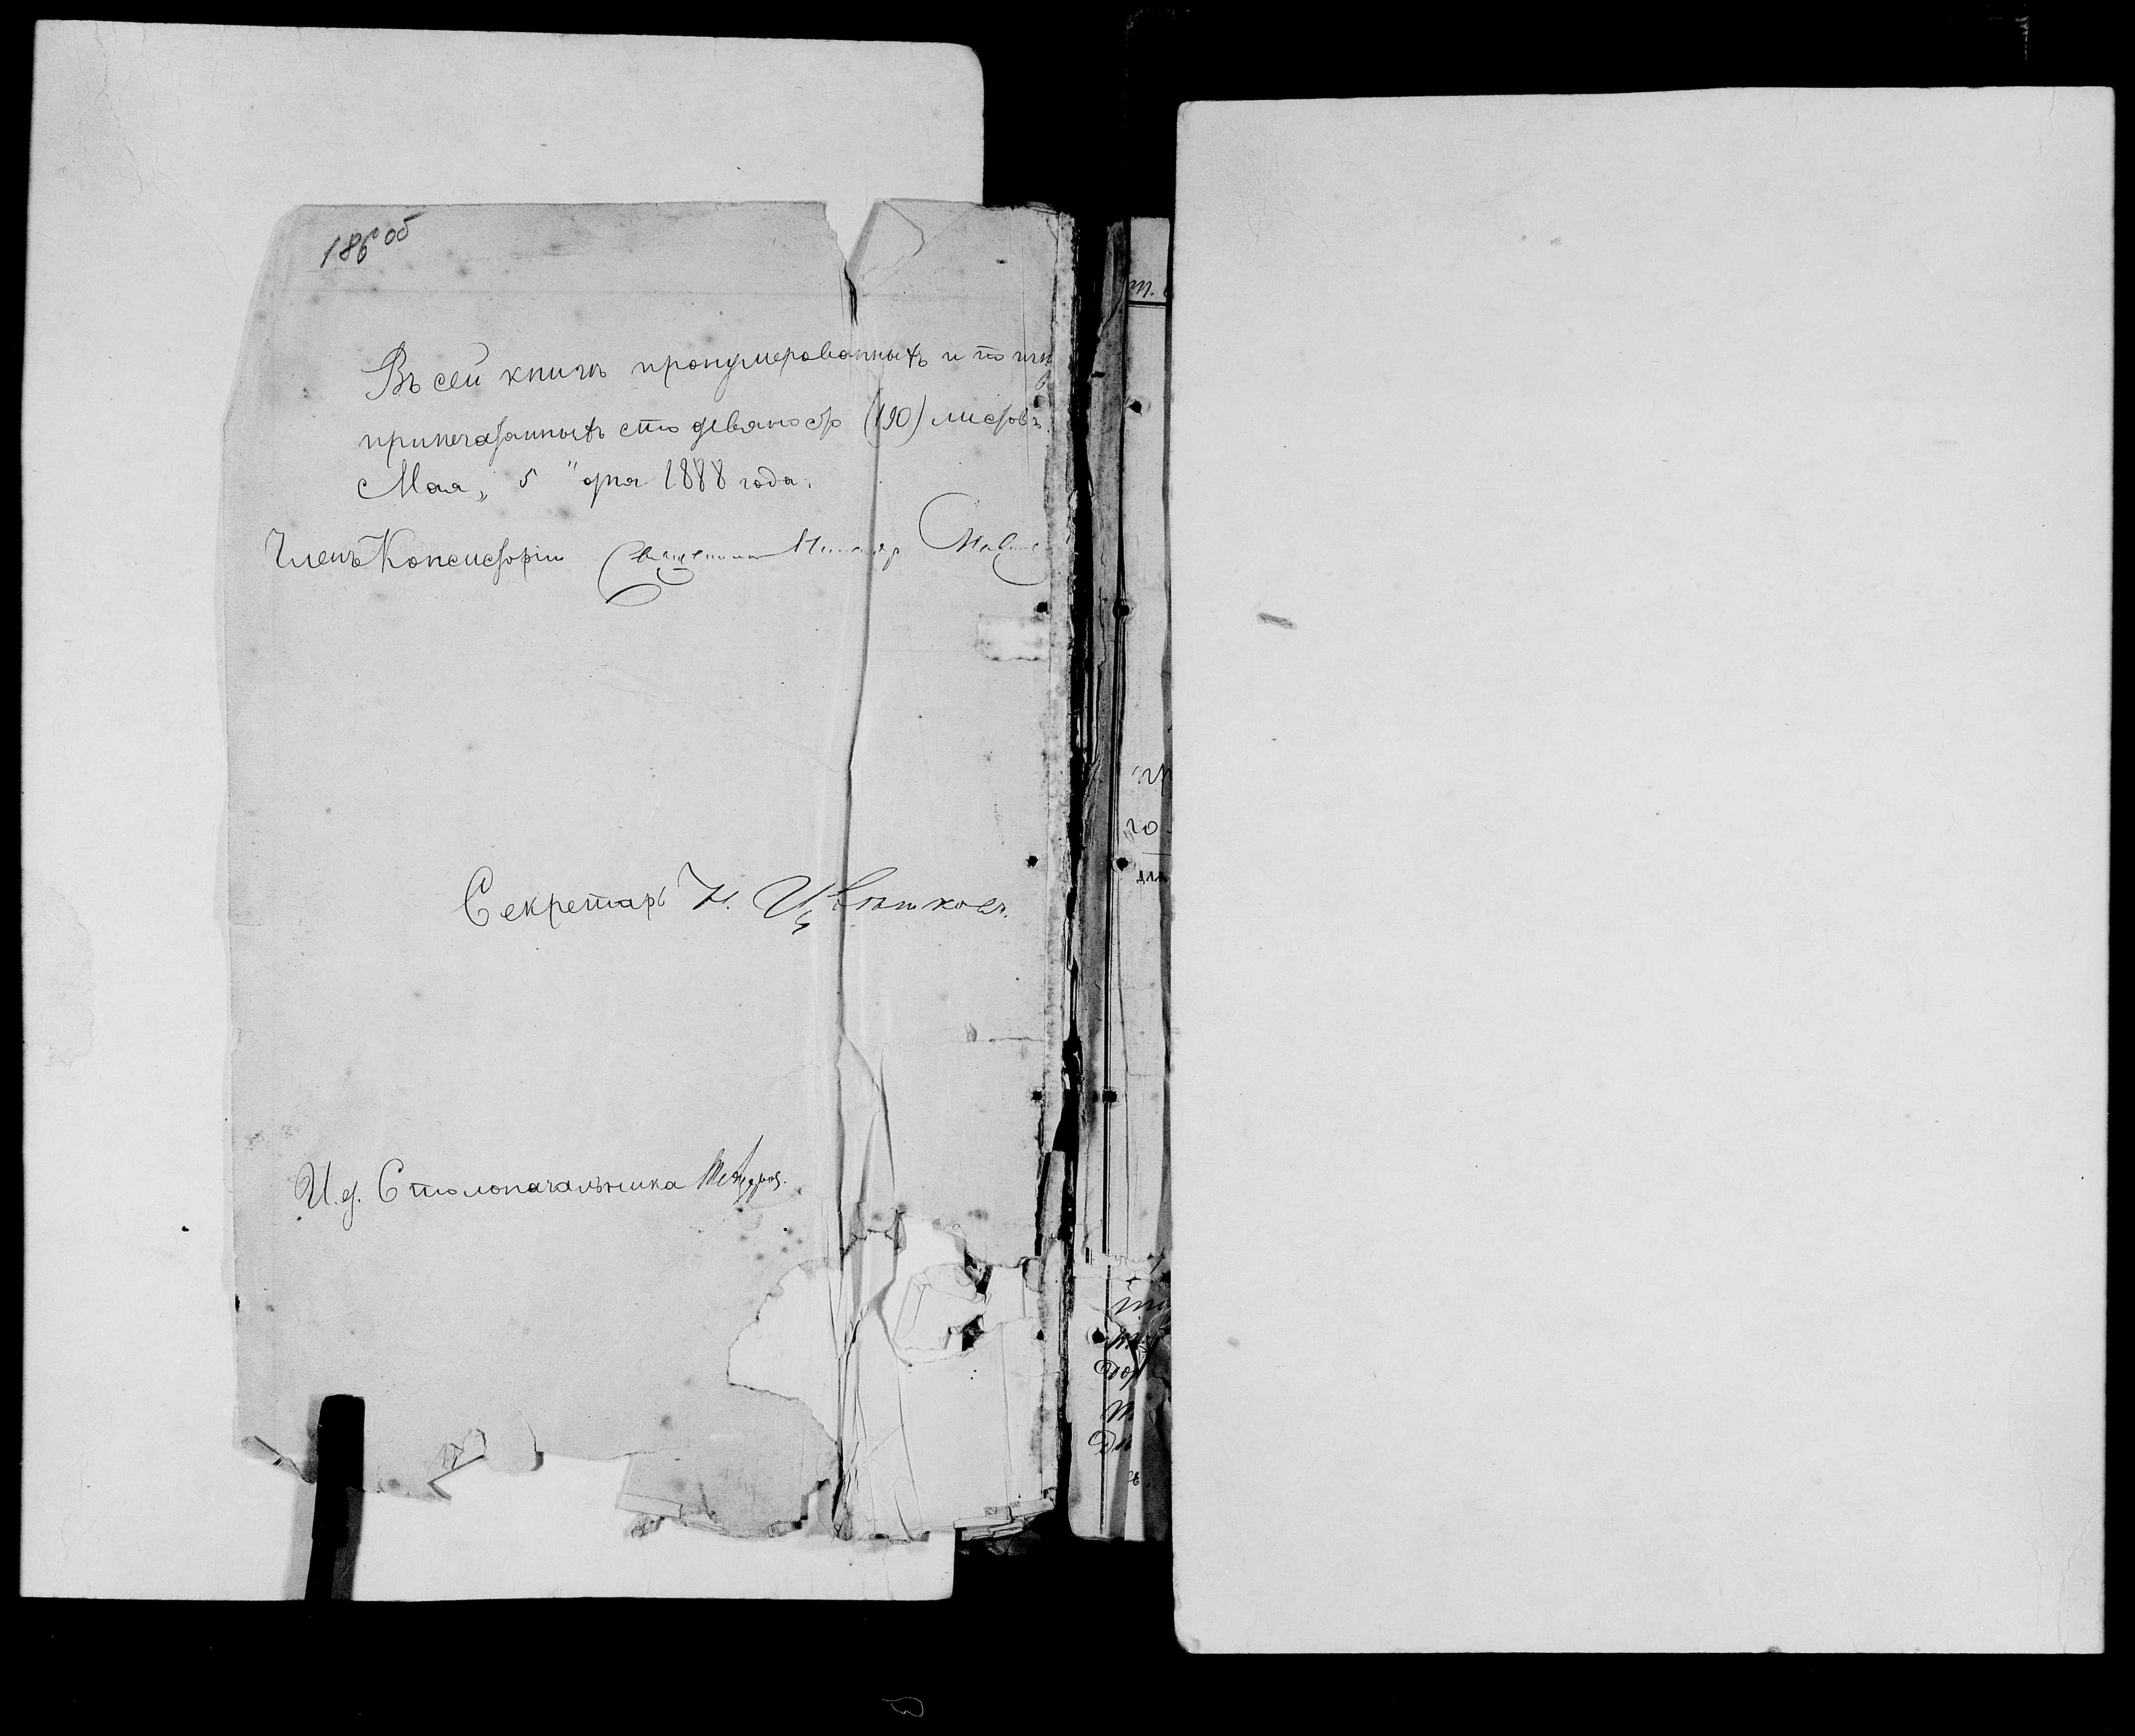 186 об
Въ сей книгѣ пронумерованныхъ и по
припечатанныхъ сто девяносто (190) листовъ.
Мая „ 5 " дня 1888 года.
Членъ Консисторіи Священникъ
Секретарь Н. Цвѣтковъ.
И. д. Столоначальника